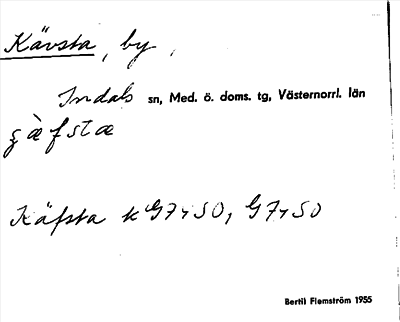 Kävsta, by,
Indals sn, Med. ö. doms. tg, Västernorrl. län
Käfsta k G7r50, G7r50
Bertil Flemström 1955